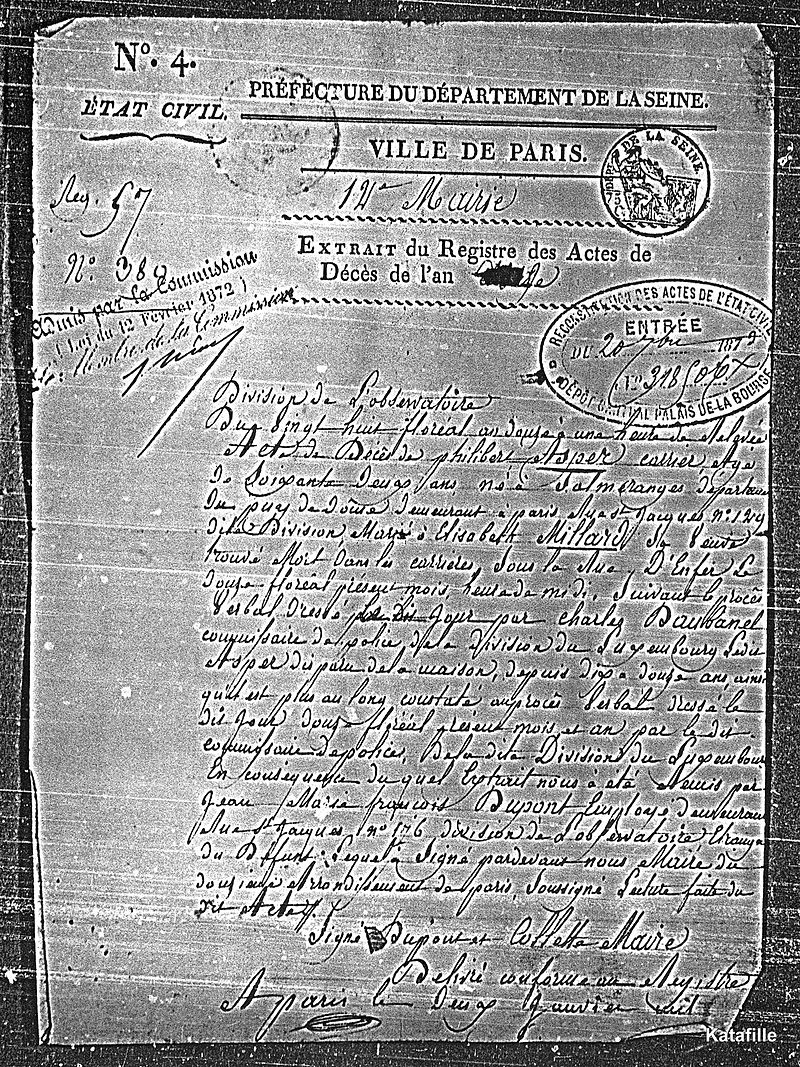 N.º 4.
ÉTAT CIVIL.
PRÉFECTURE DU DÉPARTEMENT DE LA SEINE.
VILLE DE PARIS.
DE LA SEINE
12e Mairie
Reg. 57
N.º 380
EXTRAIT du Registre des Actes de
Décès de l'an
Admis par la Commission
(Loi du 12 Février 1872)
Membre de la Commission
RECONSTITUTION DES ACTES DE L'ÉTAT CIVIL
ENTRÉE
DU 20 187
N.º 318
DÉPÔT CENTRAL PALAIS DE LA BOURSE
Division de L'observatoire
Du Vingt huit floréal an douze à une heure de Relevée
Acte de Décès de philibert Asper carrier Agé
De Soixante Deux ans né à département
Du puy de Dôme Demeurant à paris Rue St Jacques n.º 129
dite Division Marié à Elisabeth Millard Sa Veuve
trouvé Mort Dans les carrières, sous la Rue D'Enfer Le
Douze floréal présent mois, heure de midi, suivant le procès
Verbal Dressé Le Dit Jour par Charles Daubanel
commissaire de police, de la Division du Luxembourg Ledit
Asper disparu de la maison, depuis dix a douze ans, ainsi
qu'il est plus au long constaté au procès Verbal dressé le
dit Jour douze floréal présent mois et an par le dit
commissaire de police, De la dite Division du Luxembour
En conséquence du quel Extrait nous à été Remis par
Jean Marie françois Dupont Employé demeurant
Rue St Jacques n.º 176 division de L'observatoire,
du Défunt, Lequel a Signé pardevant nous Maire du
douzième Arrondissement de paris, Soussigné Lecture faite du
dit Acte,
Signé Dupont et Collette Maire
Délivré conforme au Registre
A paris le Deux Janvier mil
Katafille